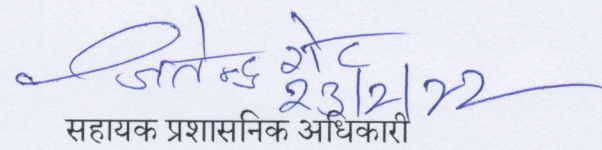 जितेन्द्र
23/2/22
सहायक प्रशासनिक अधिकारी